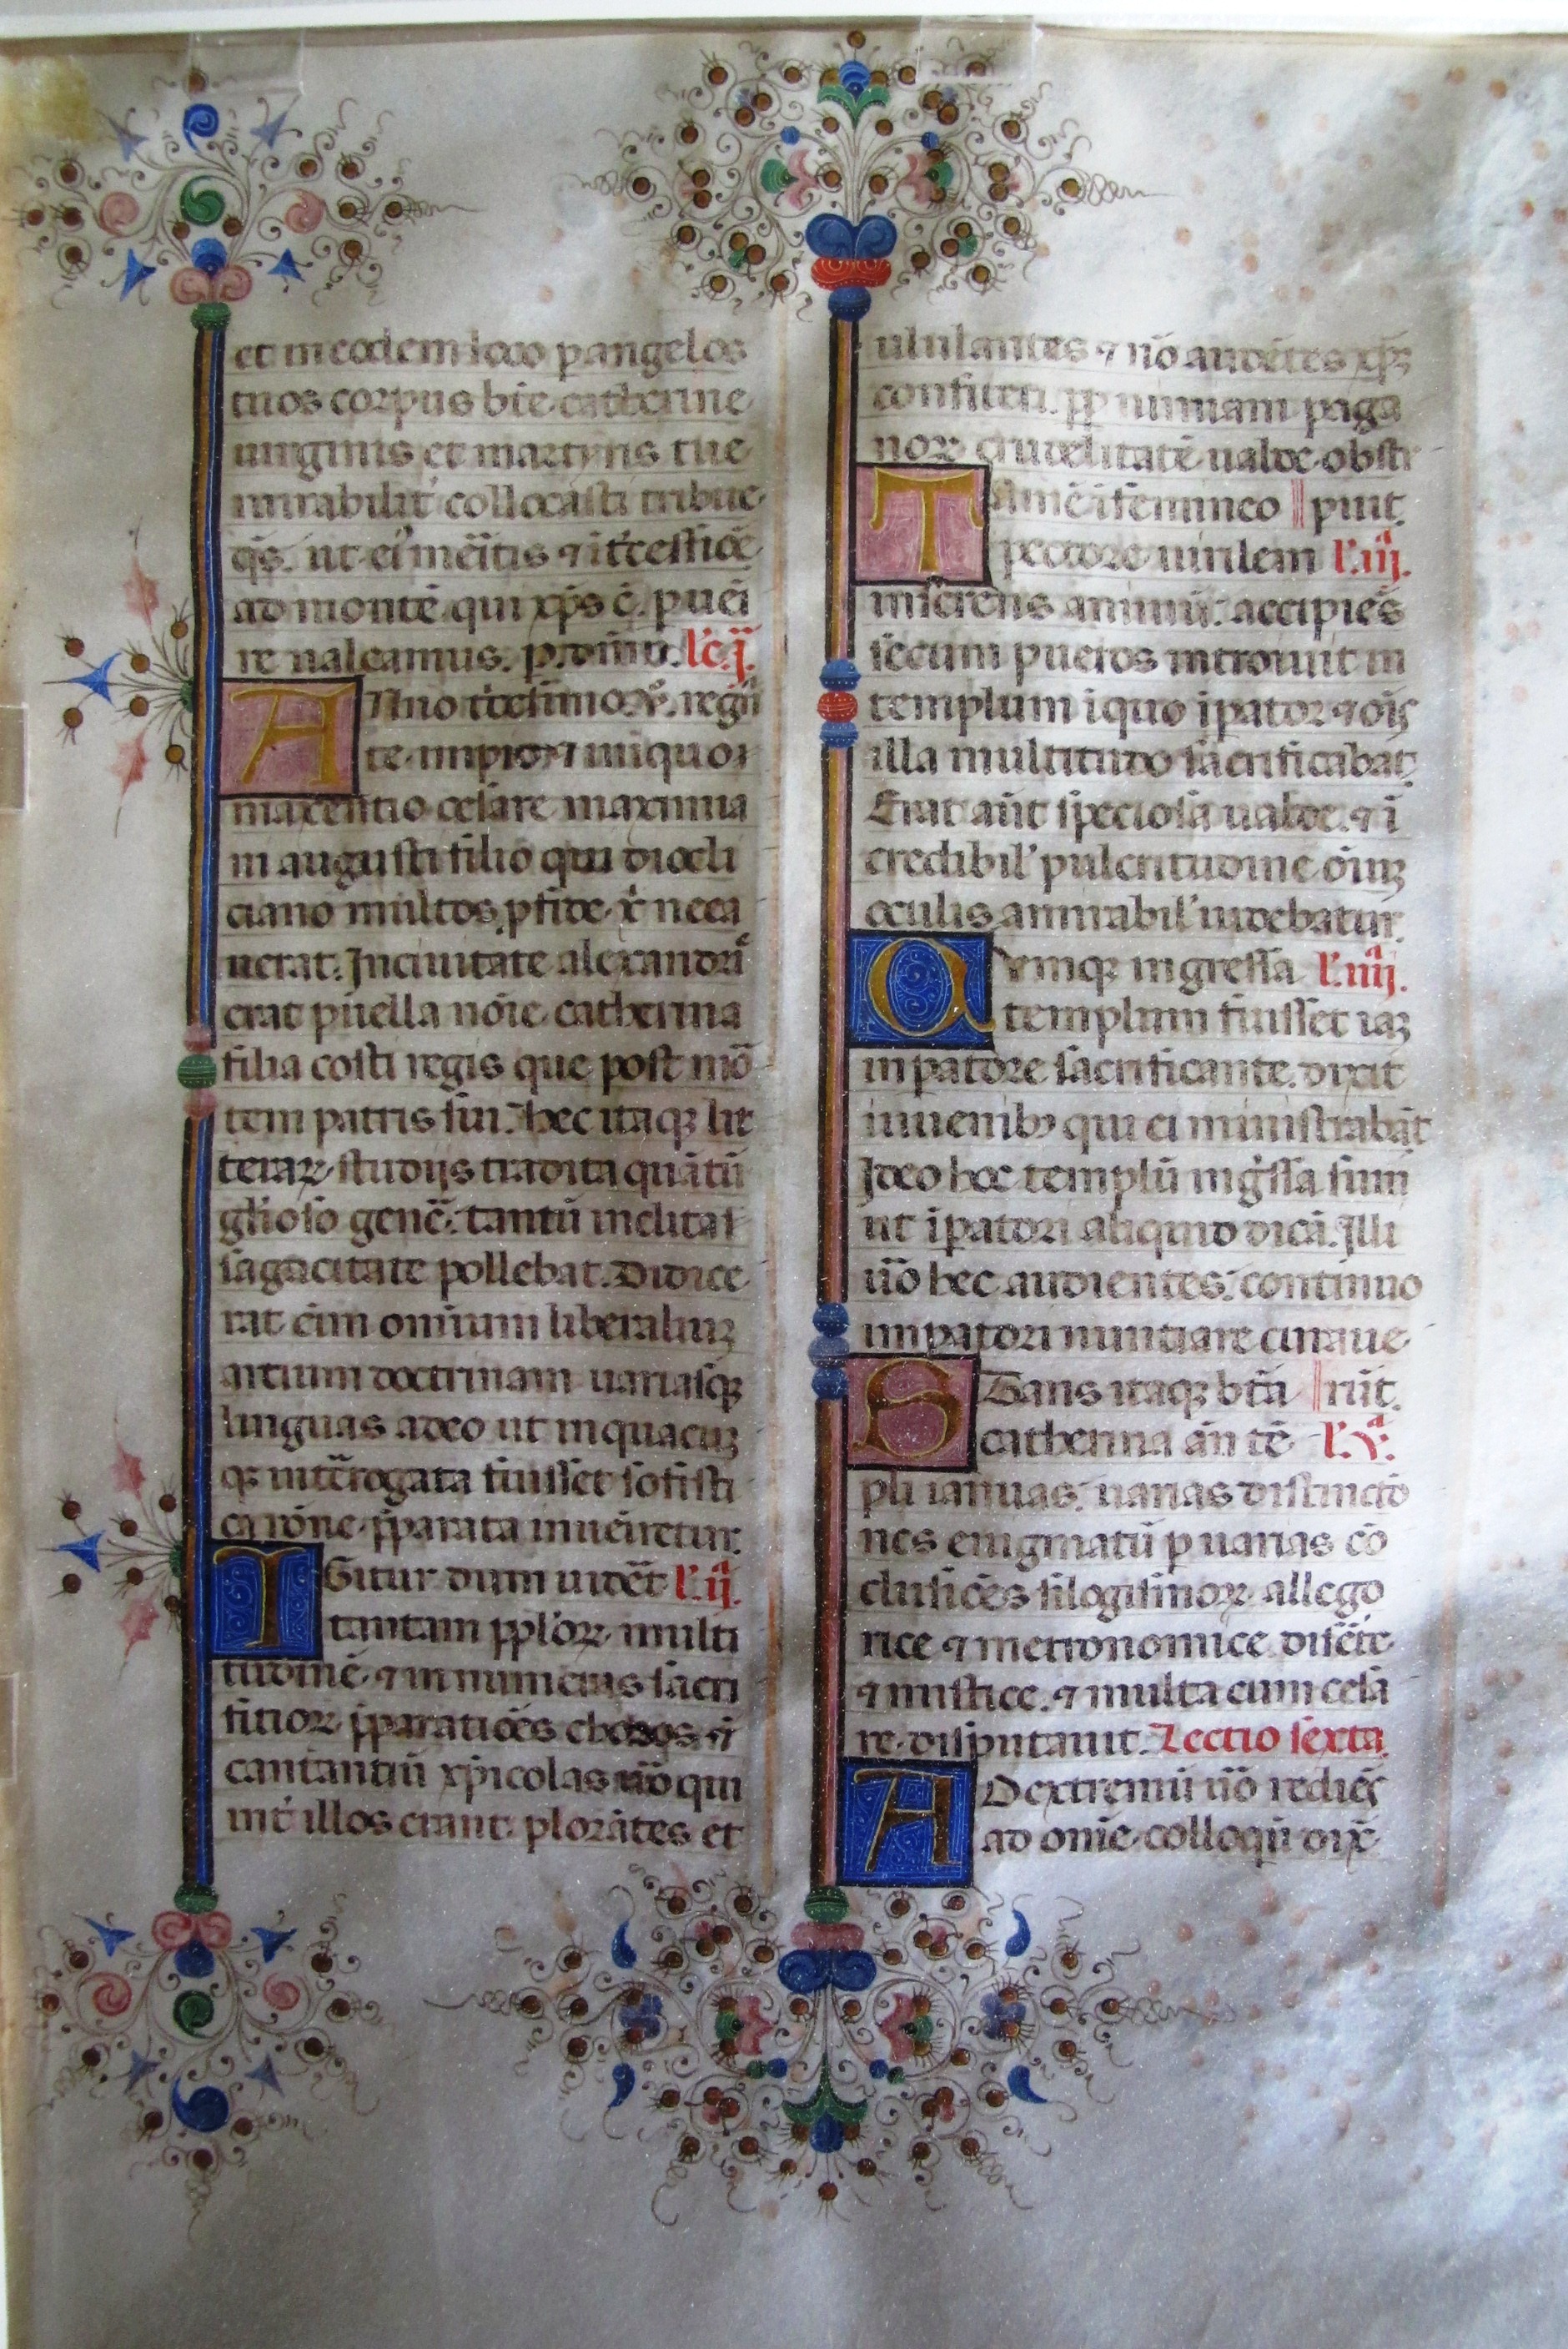 et in eodem loco p angelos
tuos corpus bt̄e catherine
uirginis et martyris tue
mirabilit̄ collocasti tribue
qs̄. ut ei' mēitis ⁊ it̄cessiōe
ad montē qui xp̄s ē. pueī
re ualeamus. p. dn̄m. l'c. j.
ANno t̄cesimo. v̄. regn̄
te impio ⁊ iniquo
maxentio cesare maximia
ni augusti filio qui diocli
ciano multos p fide x̄ neca
uerat. In ciuitate alexandrī
erat puella nōie catherina
filia costi regis que post mō
tem patris sui. hec itaqꝫ lit
teraꝝ studijs tradita quātū
gl'ioso gen̄e. tantū inclita
sagacitate pollebat. Didice
rat ēim omnium liberaliuꝫ
artium doctrinam uariasqꝫ
linguas adeo ut in quacuꝫ
qꝫ int̄erogata fuisset sofisti
ca rōne p̄parata inueīretur.
IGitur dum uidēt l'. ij.
tantam pp̄loꝝ multi
tudinē ⁊ innumeras sacri
fitioꝝ p̄paratiōes choros ⁊
cantantiū xp̄icolas uō qui
int̄ illos erant plorātes et
ululantes ⁊ nō audētes xp̄ꝫ
confiteri. pp̄ nimiam paga
noꝝ crudelitatē ualde obstu
Tūnc̄ i femineo puit.
pectore uirilem l'. iij.
inserens animū. accipiēs
secum pueros introiuit in
templum i quo ip̄ator ⁊ oīs
illa multitudo sacrificabat
Erat aūt speciosa ualde. ⁊ ī
credibil' pulcritudine oīuꝫ
oculis amirabil' uidebatur.
CVmqꝫ ingressa l'. iiij.
templum fuisset iaꝫ
inpatore sacrificante. dixit
iuuenibꝰ qui ei ministrabāt
Ideo hoc templū inḡssa sum
ut ip̄atori aliquid dicā. Illi
uō hec audientes. continuo
impatori nuntiare curaue
STans itaqꝫ bt̄a rūt.
catherina añ tē l'. v.
pli ianuas. uarias distinctō
nes enigmatū p uarias cō
clusiōes silogismoꝝ allego
rice ⁊ metronomice disēte
⁊ mistice. ⁊ multa cum cesa
re disputauit. Lectio sexta.
AD extremū uō rediēs
ad om̄e colloqū dix̄